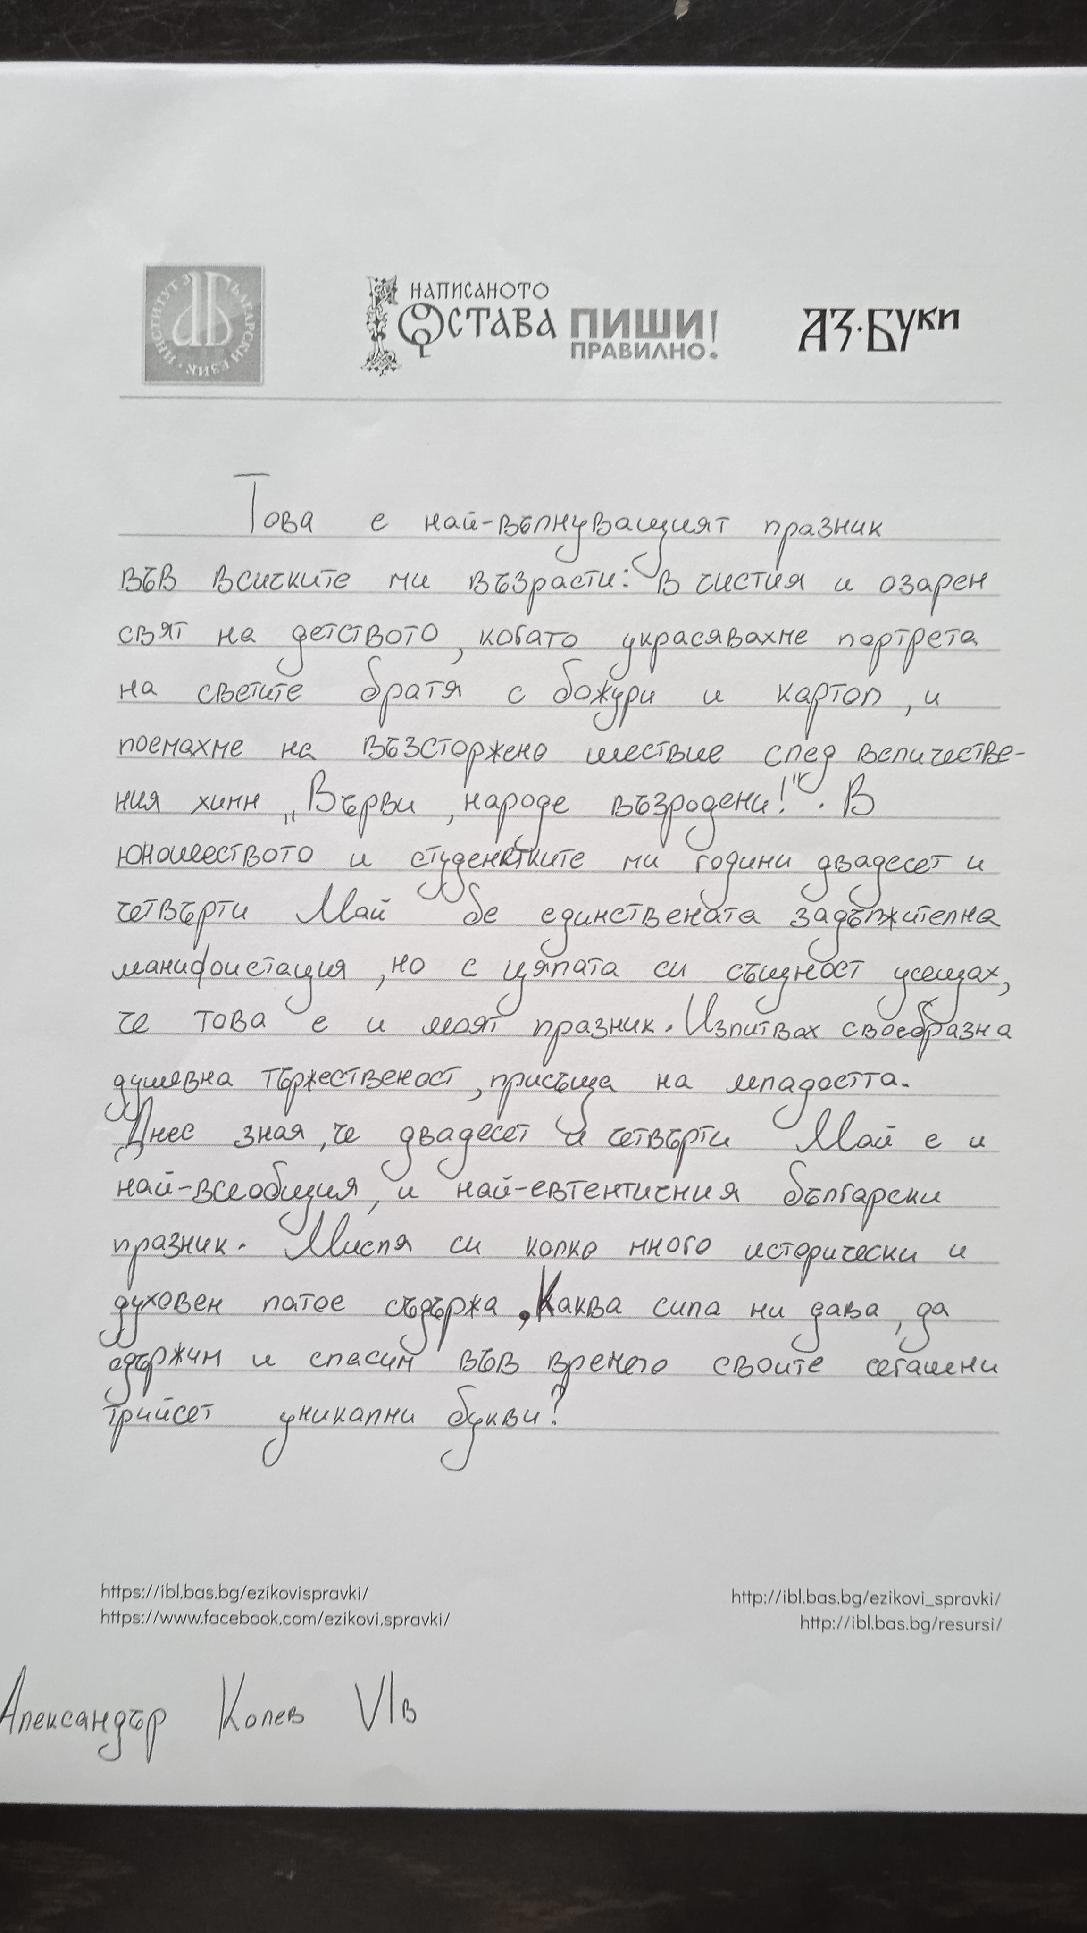 ИНСТИТУТ ЗА БЪЛГАРСКИ ЕЗИК
НАПИСАНОТО
ОСТАВА
ПИШИ!
ПРАВИЛНО.
АЗ·БУКИ
Това е най-вълнуващият празник
във всичките ми възрасти: в чистия и озарен
свят на детството, когато украсявахме портрета
на светите братя с божури и картоп, и
поемахме на възсторжено шествие след величестве-
ния химн „Върви, народе възродени!". В
юношеството и студентките ми години двадесет и
четвърти Май бе единствената задължителна
манифоистация, но с цялата си същност усещах,
че това е и моят празник. Изпитвах своеобразна
душевна тържественост, присъща на младостта.
Днес зная, че двадесет и четвърти Май е и
най-всеобщия, и най-евтентичния български
празник. Мисля си колко много исторически и
духовен патос съдържа, Каква сила ни дава, да
одържим и спасим във времето своите сегашни
трийсет уникални букви?
https://ibl.bas.bg/ezikovispravki/
https://www.facebook.com/ezikovi.spravki/
http://ibl.bas.bg/ezikovi_spravki/
http://ibl.bas.bg/resursi/
Александър Колев VIв